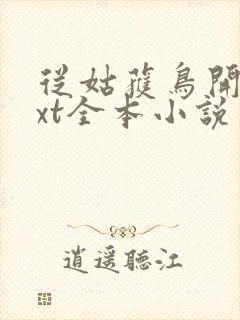 從姑蘇鳥開
xt全本小說
逍遙聽江